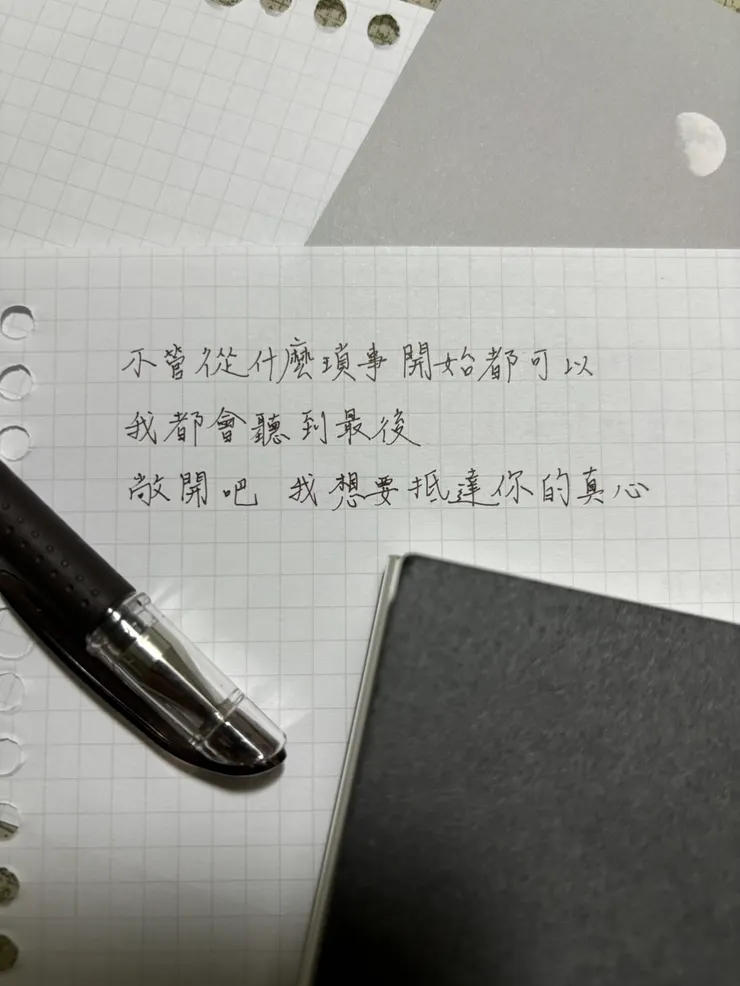 不管從什麼瑣事開始都可以
我都會聽到最後
敞開吧 我想要抵達你的真心